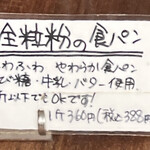 全粒粉の食パン
わふわ やわらか食パン
び糖・牛乳 バター使用
斤以下でもOKです!
1斤360円(税込388円